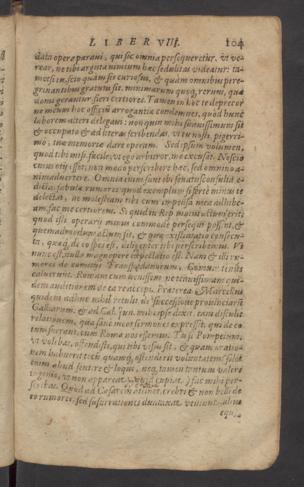 LIBER VIII. 104
data opera paravi, qui sic omnia persequeretur, ut verear,
ne tibi argutum nimium hæc sedulitas videatur: tametsi
scio quam sis curiosus, & quam omnibus peregrinantibus
gratum sit, minimarum quoq; rerum, quæ
domi gerantur fieri certiores. Tamen in hoc te deprecor
ne meum hoc officium arrogantiæ condemnes, quod hunc
laborem alteri delegavi: non quin mihi suavissimum sit
& occupato & ad literas scribendas, ut tu nosti, pigerrimo,
tuæ memoriæ dare operam. Sed ipsum volumen,
quod tibi misi, facile, ut ego arbitror, me excusat. Nescio
cujus otii esset, non modo perscribere hæc, sed omnino animadvertere.
Omnia enim sunt ibi senatusconsulta, edicta,
fabulæ, rumores: quod exemplum si forte minus te
delectarit, ne molestiam tibi cum impensa mea exhibeam,
fac me certiorem. Si quid in Rep. majus actum erit,
quod isti operarii minus commode persequi possint, &
quemadmodum actum sit, & quæ existimatio consecuta,
quæq; de eo spes est, diligenter tibi perscribemus. Ut
nunc est, nulla magnopere expectatio est. Nam & illi rumores
de comitiis Transpadanorum, Cumarum tenus
caluerunt. Romam cum venissem, ne tenuissimam quidem
auditionem de ea re accepi. Præterea Marcellus
quidem adhuc nihil retulit de successione provinciarum
Galliarum, & ad Cal. Jun. mihi ipse dixit, eam distulit
relationem,
Tu si Pompeium,
ut volebas, offendisti, qui tibi visus sit, & quam orationem
habuerit tecum, quamq; ostenderit voluntatem (solet
enim aliud sentire & loqui, neq; tantum valere
ingenio, ut non appareat quid cupiat,) fac mihi perscribas.
Quod ad Cæsarem attinet, crebri & non belli de
eo rumores, sed susurratores duntaxat veniunt. alius
equi-